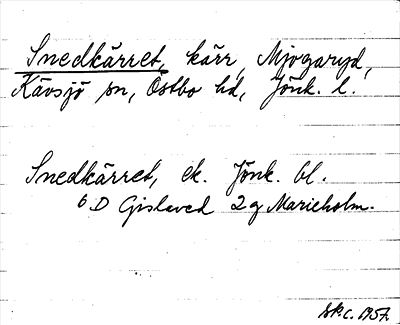 Snedkärret, kärr, Mjogaryd,
Kävsjö sn, Östbo hd, Jönk. l.
Snedkärret, ek. Jönk. bl.
6 D Gislaved 2 g Marieholm.
1957.